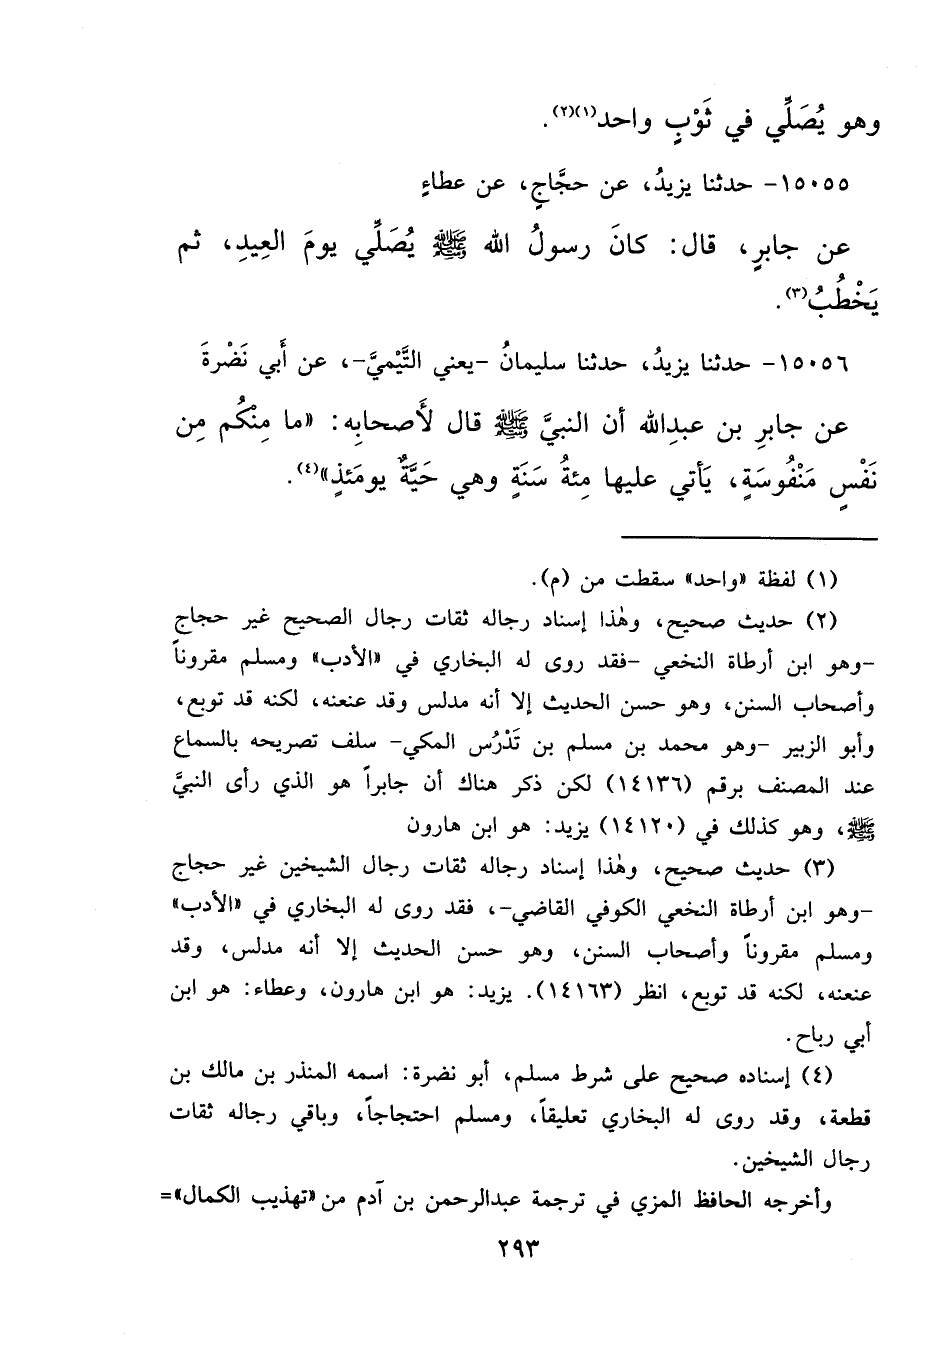 وهو يُصَلِّي في ثَوْبٍ واحد(١)(٢).
١٥٠٥٥- حدثنا يزيدُ، عن حجَّاجٍ، عن عطاءٍ
عن جابرٍ، قال: كانَ رسولُ الله ﷺ يُصَلِّي يومَ العِيدِ، ثم
يَخْطُبُ(٣).
١٥٠٥٦- حدثنا يزيدُ، حدثنا سليمانُ -يعني التَّيْميَّ-، عن أَبي نَضْرةَ
عن جابرِ بن عبدِالله أن النبيَّ ﷺ قال لأَصحابِه: «ما مِنْكُم مِن
نَفْسٍ مَنْفُوسَةٍ، يَأتي عليها مِئةُ سَنَةٍ وهي حَيَّةٌ يومَئذٍ»(٤).
(١) لفظة «واحد» سقطت من (م).
(٢) حديث صحيح، وهٰذا إسناد رجاله ثقات رجال الصحيح غير حجاج
-وهو ابن أرطاة النخعي -فقد روى له البخاري في «الأدب» ومسلم مقروناً
وأصحاب السنن، وهو حسن الحديث إلا أنه مدلس وقد عنعنه، لكنه قد توبع،
وأبو الزبير -وهو محمد بن مسلم بن تَدْرُس المكي- سلف تصريحه بالسماع
عند المصنف برقم (١٤١٣٦) لكن ذكر هناك أن جابراً هو الذي رأى النبيَّ
ﷺ، وهو كذلك في (١٤١٢٠) يزيد: هو ابن هارون
(٣) حديث صحيح، وهٰذا إسناد رجاله ثقات رجال الشيخين غير حجاج
-وهو ابن أرطاة النخعي الكوفي القاضي-، فقد روى له البخاري في «الأدب»
ومسلم مقروناً وأصحاب السنن، وهو حسن الحديث إلا أنه مدلس، وقد
عنعنه، لكنه قد توبع، انظر (١٤١٦٣). يزيد: هو ابن هارون، وعطاء: هو ابن
أبي رباح.
(٤) إسناده صحيح على شرط مسلم، أبو نضرة: اسمه المنذر بن مالك بن
قطعة، وقد روى له البخاري تعليقاً، ومسلم احتجاجاً، وباقي رجاله ثقات
رجال الشيخين.
وأخرجه الحافظ المزي في ترجمة عبدالرحمن بن آدم من «تهذيب الكمال»=
٢٩٣